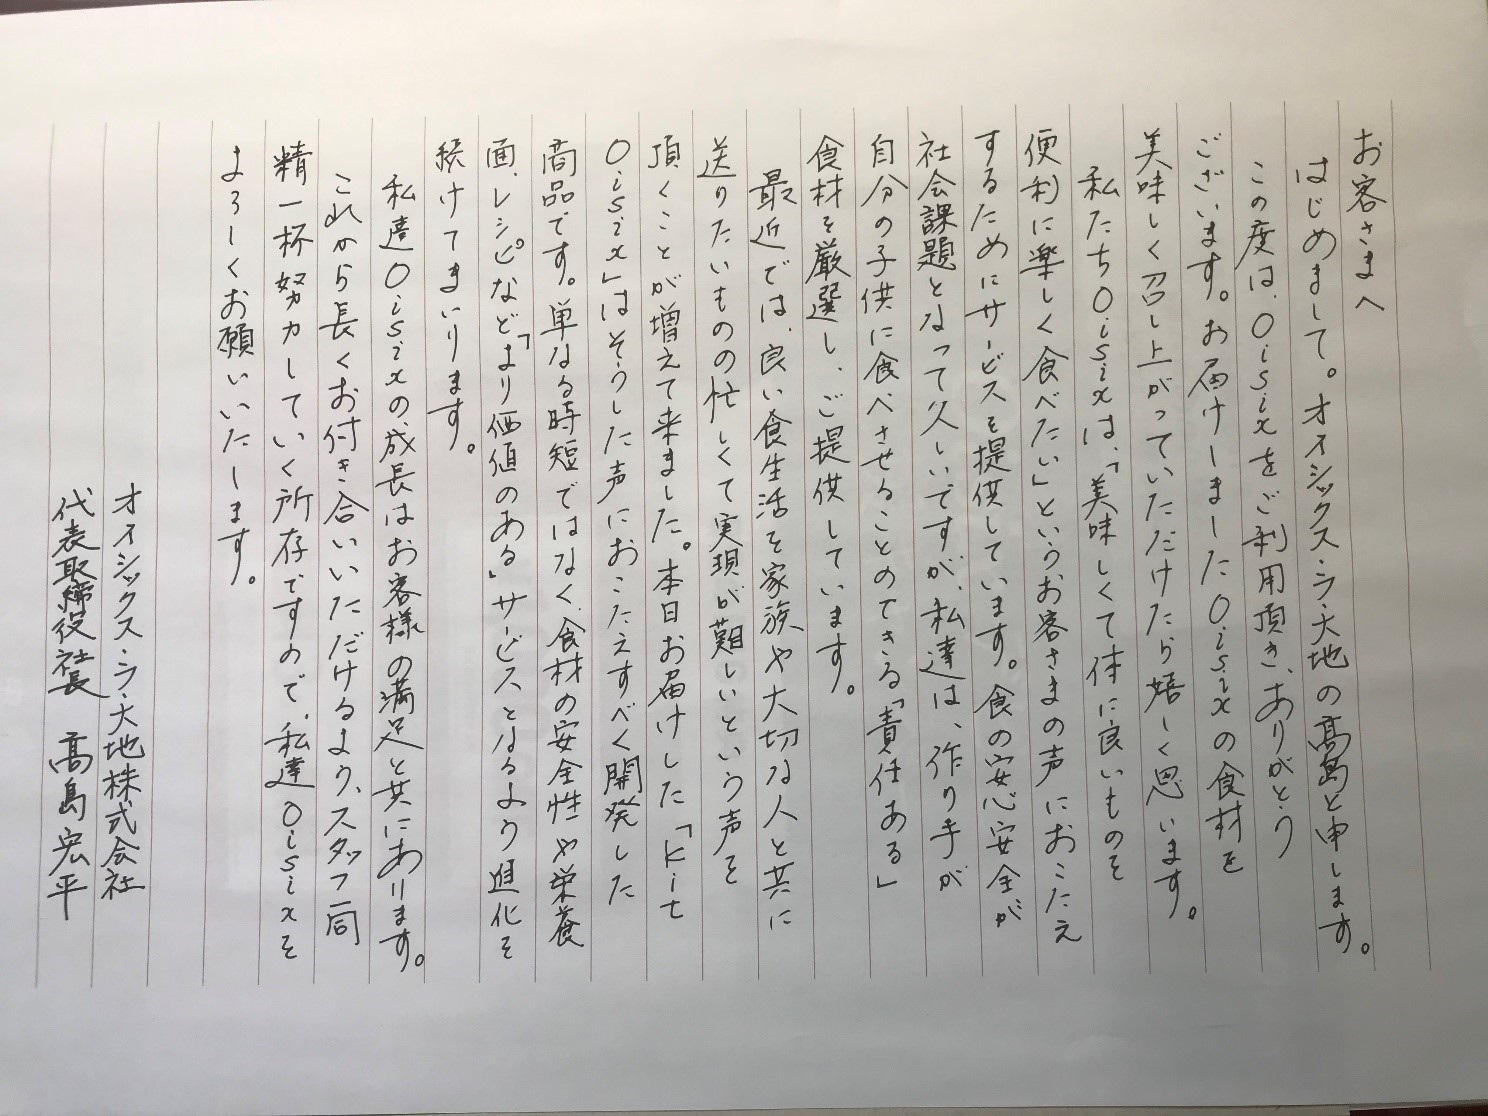 お客さまへ
はじめまして。オイシックス・ラ・大地の高島と申します。
この度は、Oisixをご利用頂き、ありがとう
ございます。お届けしましたOisixの食材を
美味しく召し上がっていただけたら嬉しく思います。
私たちOisixは、「美味しくて体に良いものを
便利に楽しく食べたい」というお客さまの声におこたえ
するためにサービスを提供しています。食の安心安全が
社会課題となって久しいですが、私達は、作り手が
自分の子供に食べさせることのできる「責任ある」
食材を厳選し、ご提供しています。
最近では、良い食生活を家族や大切な人と共に
送りたいものの忙しくて実現が難しいという声を
頂くことが増えて来ました。本日お届けした「Kit
Oisix」はそうした声におこたえすべく開発した
商品です。単なる時短ではなく、食材の安全性や栄養
面、レシピなど「より価値のある」サービスとなるよう進化を
続けてまいります。
私達Oisixの成長はお客様の満足と共にあります。
これから長くお付き合いいただけるよう、スタッフ一同
精一杯努力していく所存ですので、私達Oisixを
よろしくお願いいたします。
オイシックス・ラ・大地株式会社
代表取締役社長 高島宏平